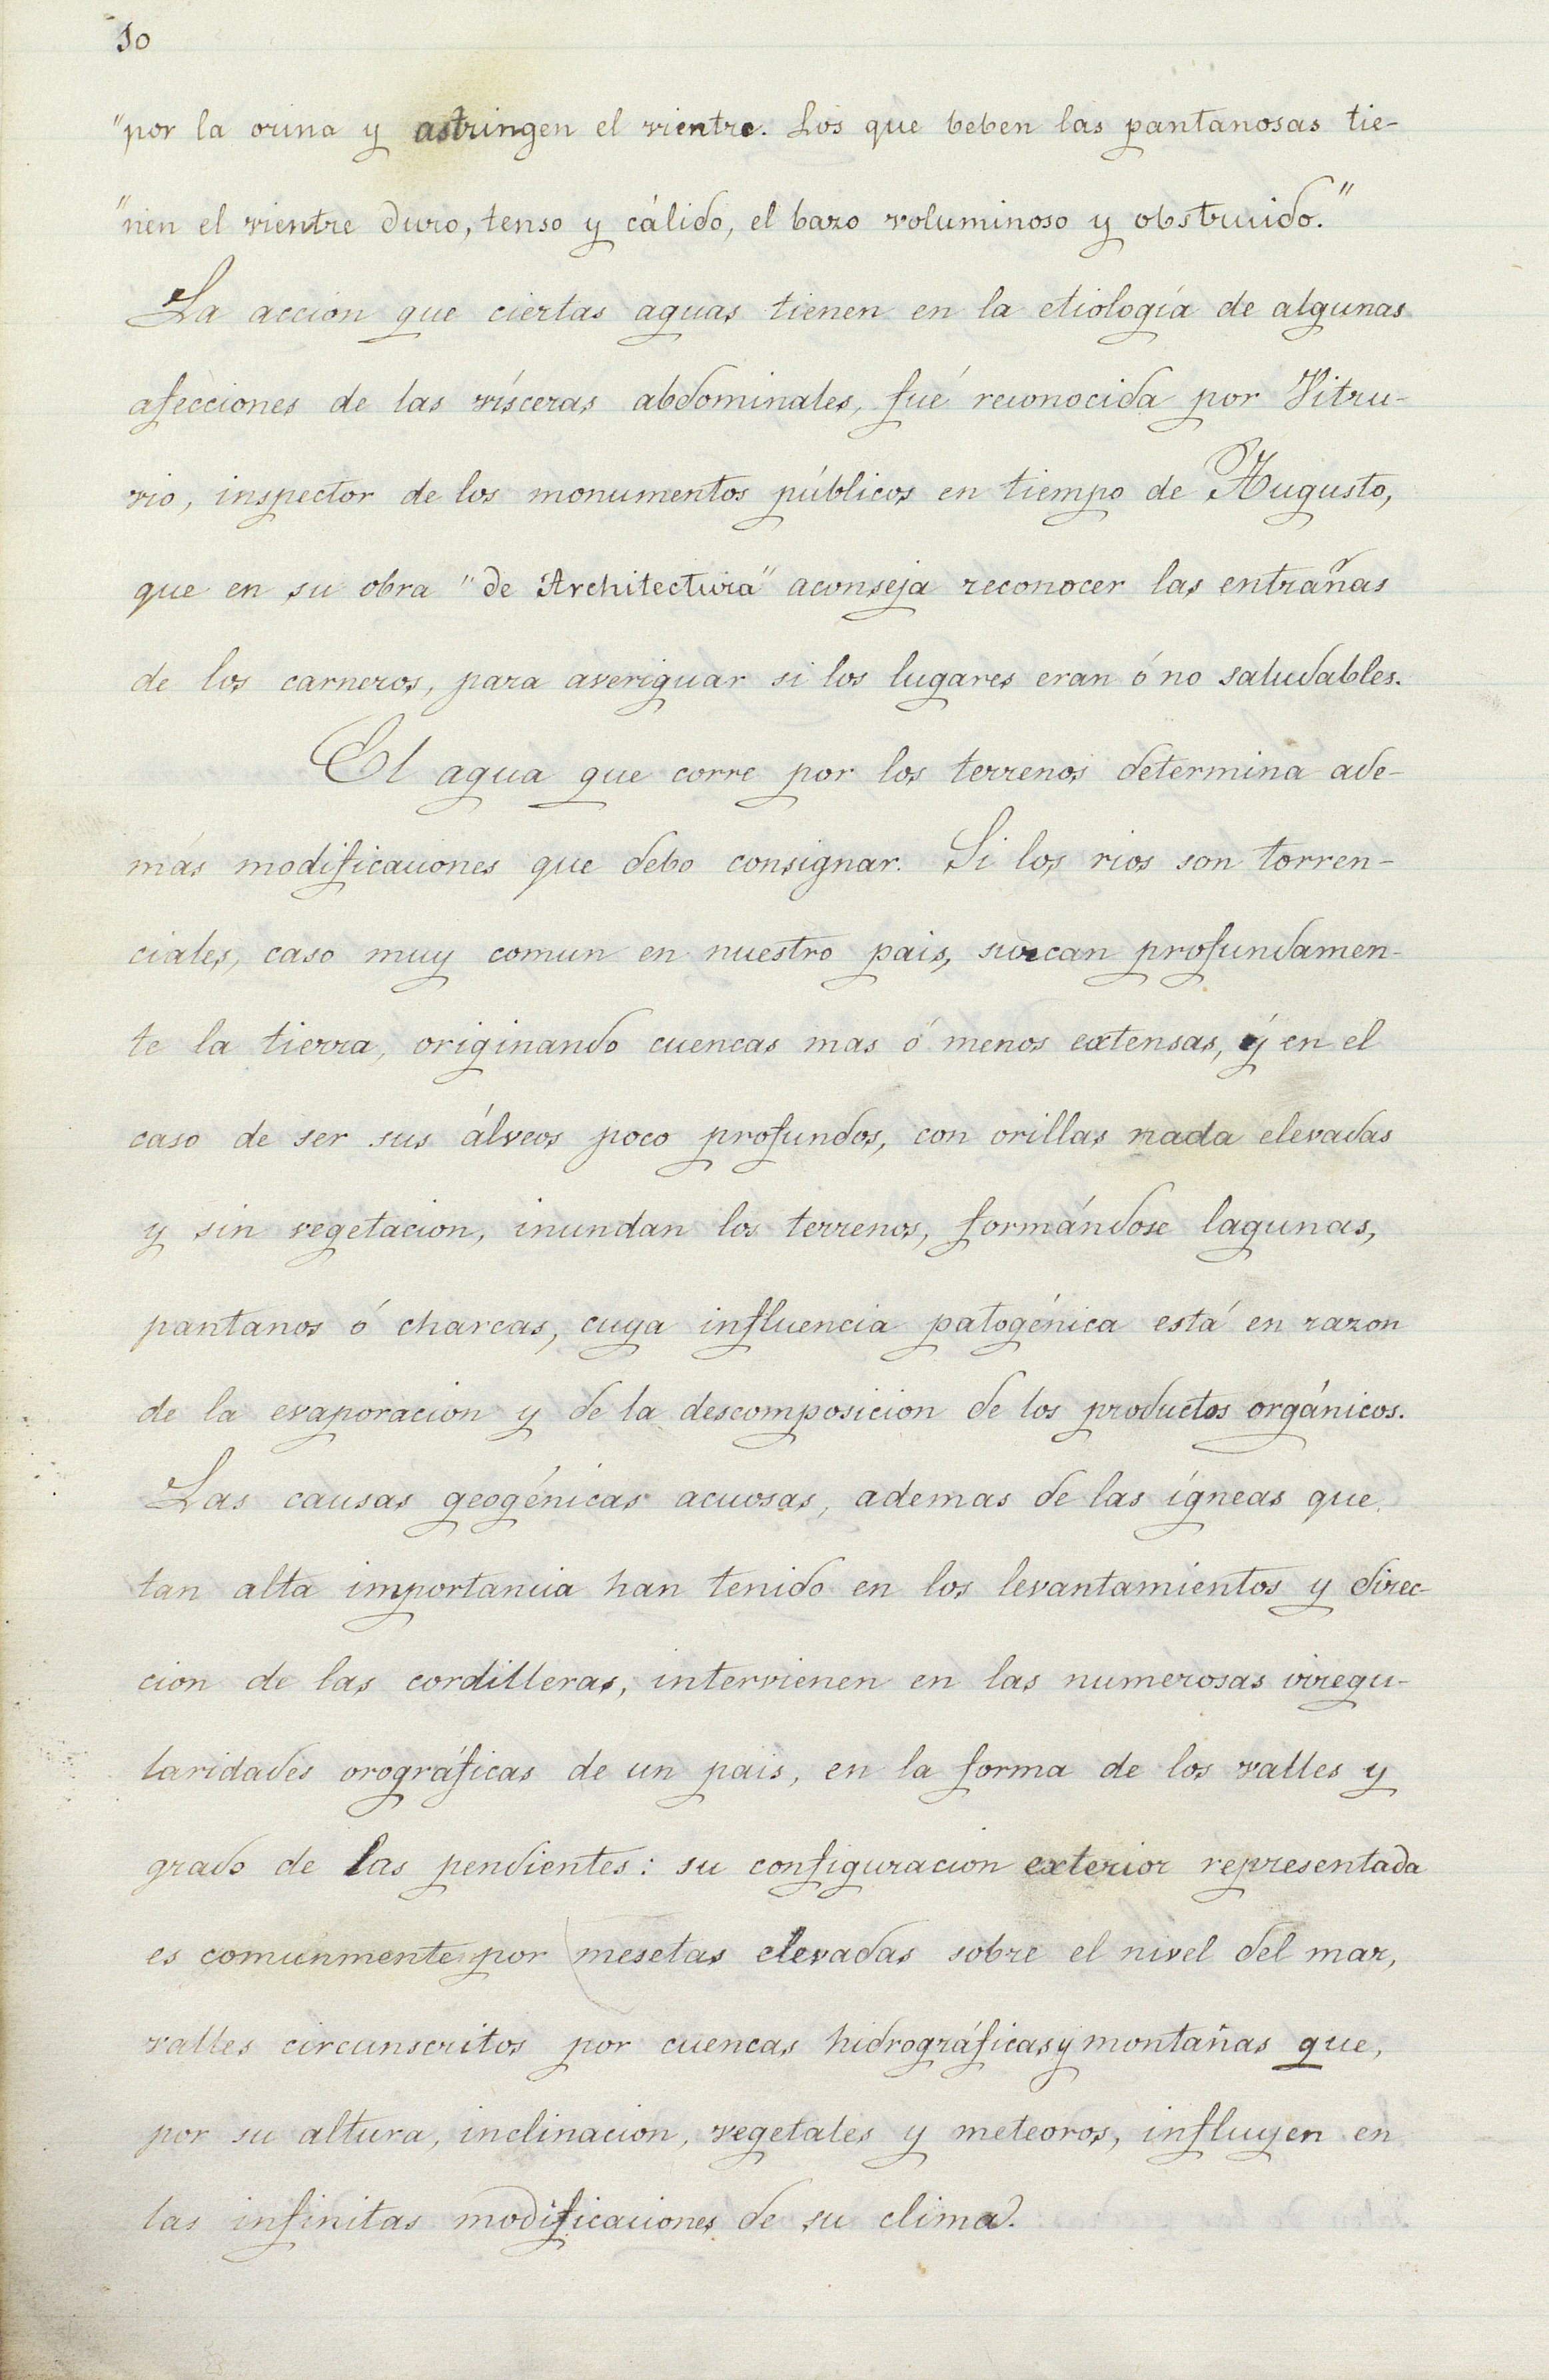 10
"por la orina y astringen el vientre. Los que beben las pantanosas tie-
"nen el vientre duro, tenso y cálido, el bazo voluminoso y obstruido."
La accion que ciertas aguas tienen en la etiología de algunas
afecciones de las vísceras abdominales, fué reconocida por Vitru-
vio, inspector de los monumentos públicos en tiempo de Augusto,
que en su obra "de Architectura" aconseja reconocer las entrañas
de los carneros, para averiguar si los lugares eran ó no saludables.
El agua que corre por los terrenos determina ade-
más modificaciones que debo consignar. Si los rios son torren-
ciales, caso muy comun en nuestro pais, surcan profundamen-
te la tierra, originando cuencas mas ó menos extensas, y en el
caso de ser sus álveos poco profundos, con orillas nada elevadas
y sin vegetacion, inundan los terrenos, formándose lagunas,
pantanos ó charcas, cuya influencia patogénica está en razon
de la evaporacion y de la descomposicion de los productos orgánicos.
Las causas geogénicas acuosas, ademas de las ígneas que
tan alta importancia han tenido en los levantamientos y direc-
cion de las cordilleras, intervienen en las numerosas irregu-
laridades orográficas de un pais, en la forma de los valles y
grado de las pendientes: su configuracion exterior representada
es comunmente por mesetas elevadas sobre el nivel del mar,
valles circunscritos por cuencas hidrográficas y montañas que,
por su altura, inclinacion, vegetales y meteoros, influyen en
las infinitas modificaciones de su clima.